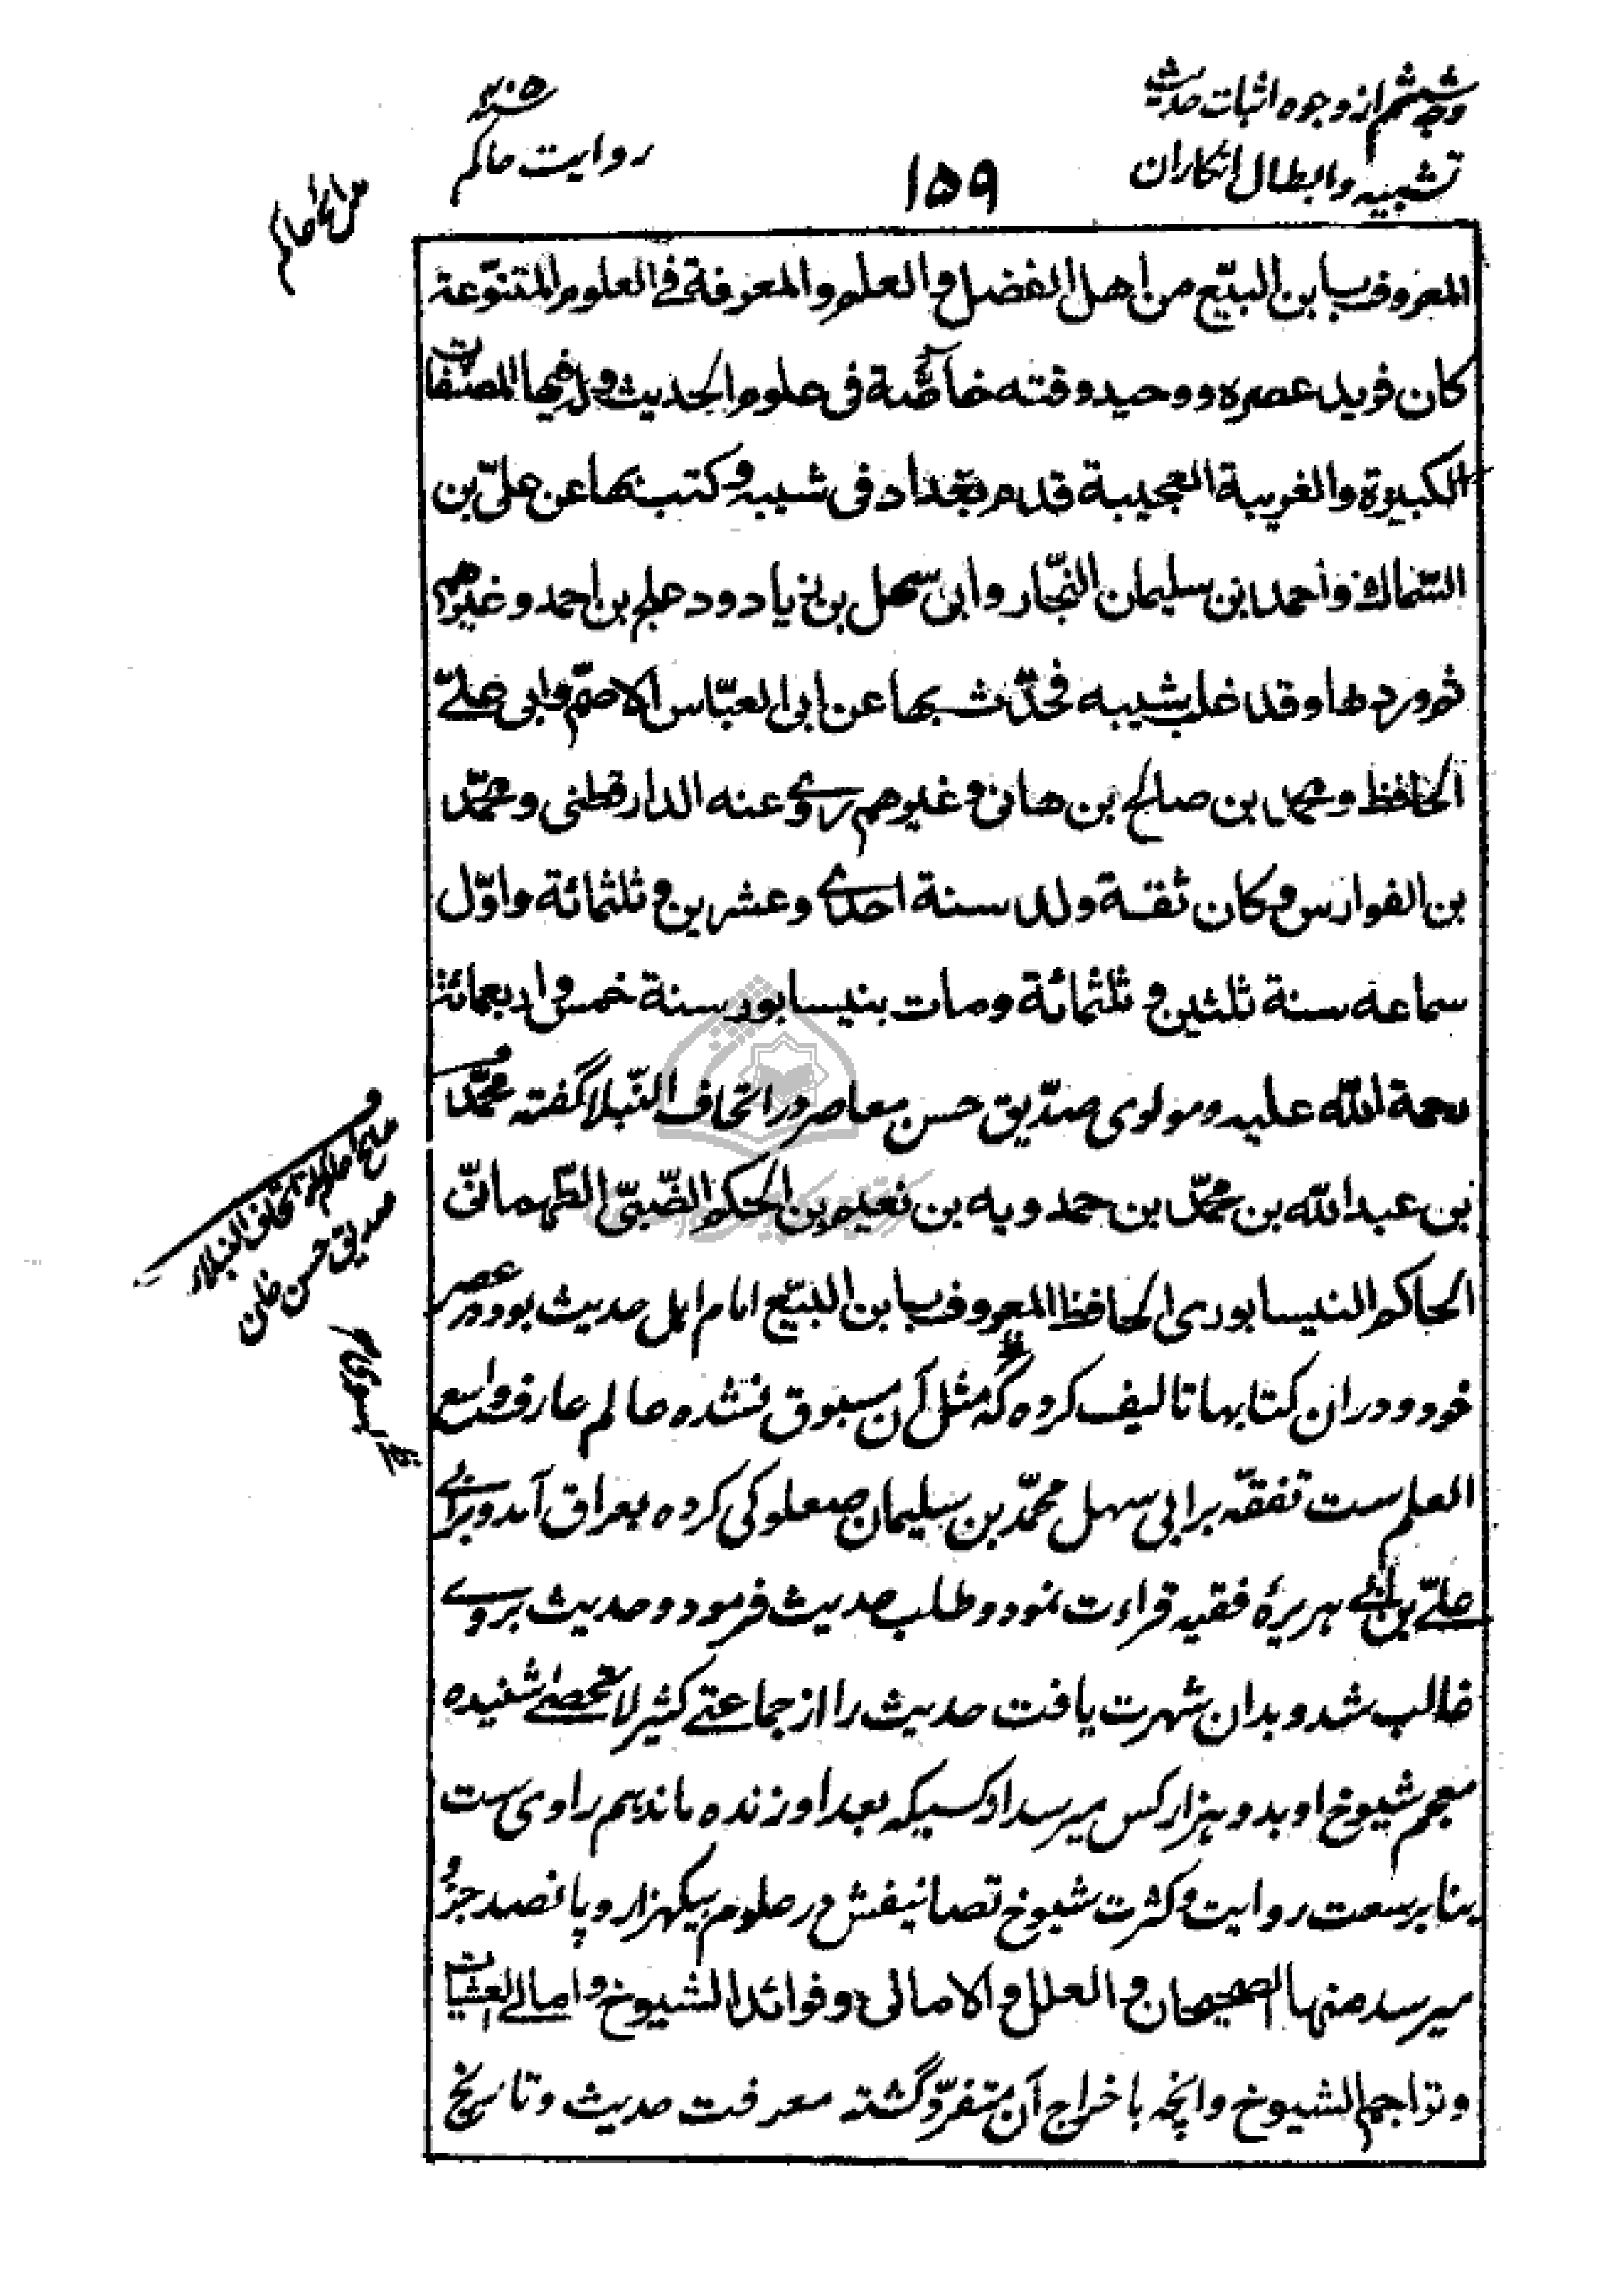 وجه ششم از وجوه اثبات حدیث
تشبیه و ابطال انکاران
۱۵۹
سنه ۴۰۵
روایت حاکم
المعروف بابن البیّع من اهل الفضل و العلم و المعرفة فی العلوم المتنوّعة
کان فرید عصره و وحید وقته خاصّة فی علوم الحدیث و له فیها المصنّفات
الکبیرة و الغریبة العجیبة قدم بغداد فی شبیبه و کتب بها عن علیّ بن
السّماک و احمد بن سلیمان النجّار و ابی سهل بن زیاد و دعلج بن احمد و غیرهم
ثم وردها و قد غلب شیبه فحدّث بها عن ابی العبّاس الاصمّ و ابی علیّ
الحافظ و محمد بن صالح بن هانی و غیرهم روی عنه الدارقطنی و محمّد
بن الفوارس و کان ثقة ولد سنة احدی و عشرین و ثلثمائة و اوّل
سماعه سنة ثلثین و ثلثمائة و مات بنیسابور سنة خمس و اربعمائة
رحمة الله علیه و مولوی صدّیق حسن معاصر در اتحاف النّبلا گفته محمّد
بن عبد الله بن محمّد بن حمدویه بن نعیم بن الحکم الضّبّیّ الطّهمانیّ
الحاکم النیسابوری الحافظ المعروف بابن البیّع امام اهل حدیث بود در عصر
خود و دران کتابها تالیف کرده که مثل آن مسبوق نشده عالم عارف واسع
العلم ست تفقّه بر ابی سهل محمّد بن سلیمان صعلوکی کرده بعراق آمد و برای
علیّ بن ابی هریرهٔ فقیه قراءت نمود و طلب حدیث فرمود و حدیث بروی
غالب شد و بدان شهرت یافت حدیث را از جماعتی کثیر لا تحصی شنیده
معجم شیوخ او بدو هزار کس میرسد او کسیکه بعد او زنده ماند هم راوی ست
بنا بر سعت روایت و کثرت شیوخ تصانیفش در علوم بیکهزار و پانصد جزو
میرسد منها الصحیحان و العلل و الامالی و فوائد الشیوخ و امالی العشیات
و تراجم الشیوخ و انچه باخراج آن متفرّد گشته معرفت حدیث و تاریخ
مدائح حاکم
صدیق حسن خان